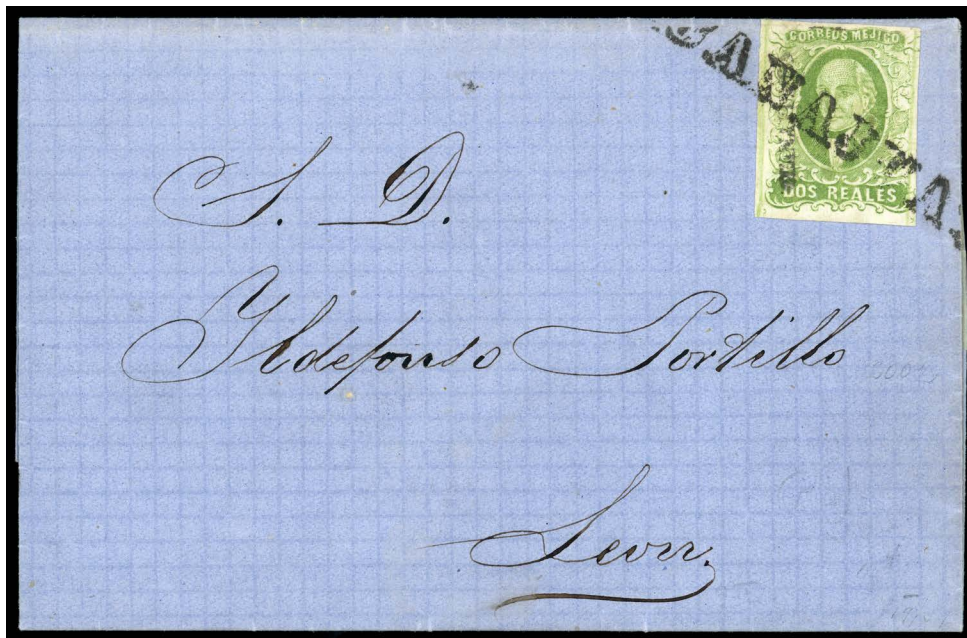 CORREOS MEJICO
DOS REALES
S. D.
Ildefonso Portillo
Leon